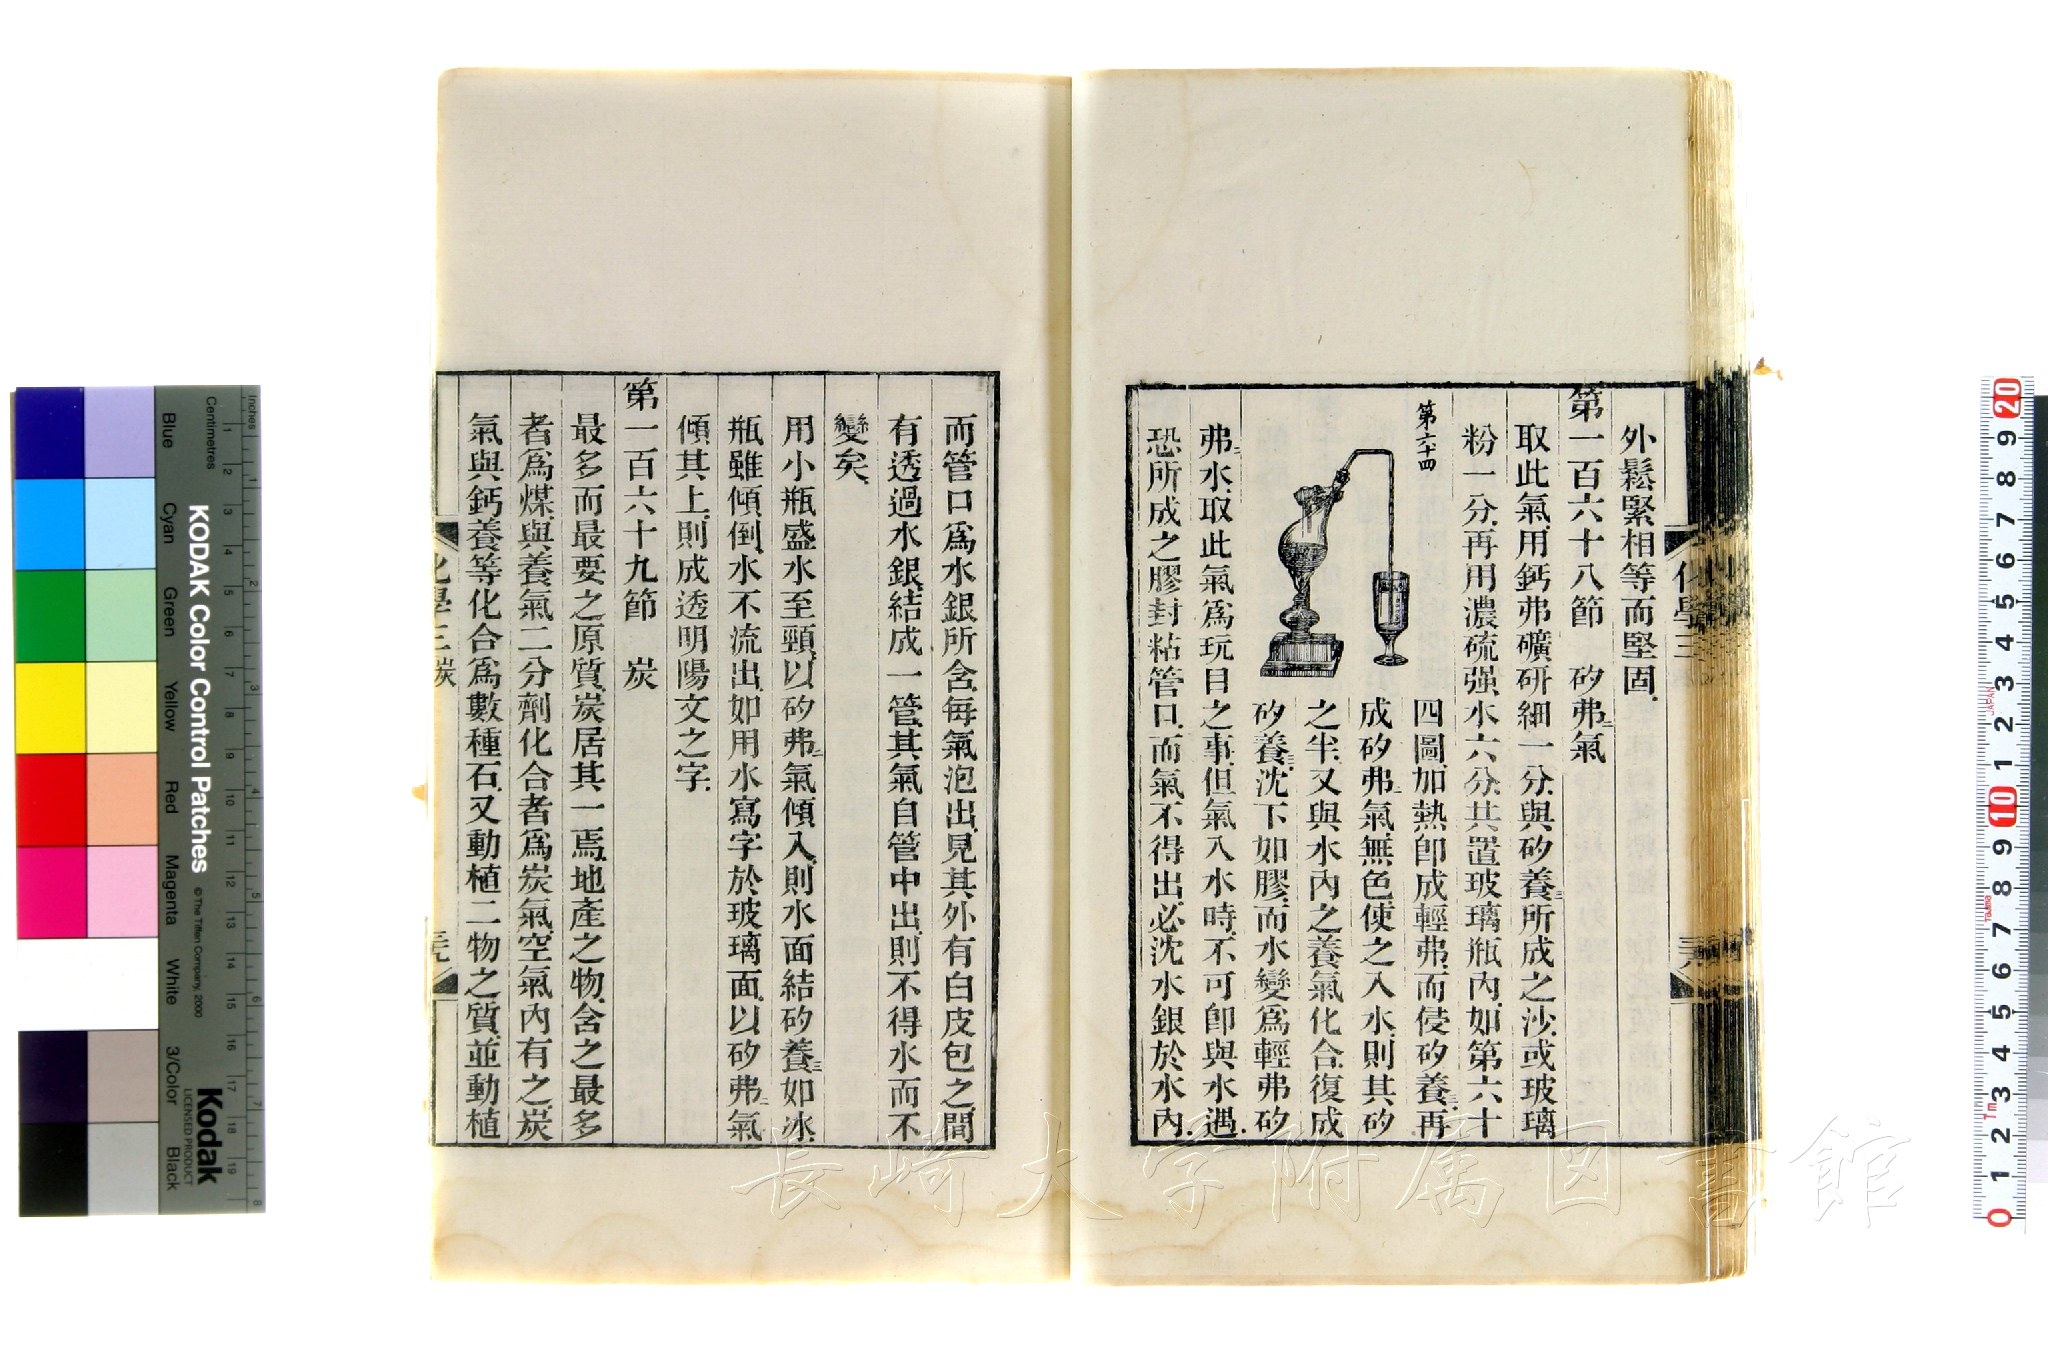 外鬆緊相等而堅固
第一百六十八節　矽弗三氣
取此氣用鈣弗礦研細一分與矽養三所成之沙或玻璃
粉一分再用濃硫强水六分共置玻璃瓶內如第六十
第六十四
四圖加熱卽成輕弗而使矽養三再
成矽弗三氣無色使之入水則其矽
之半又與水內之養氣化合復成
矽養三沈下如膠而水變爲輕弗矽
弗三水取此氣爲玩目之事但氣入水時不可卽與水遇
恐所成之膠封粘管口而氣不得出必沈水銀於水內
化學三
三六
而管口爲水銀所含每氣泡出見其外有白皮包之間
有透過水銀結成一管其氣自管中出則不得水而不
變矣
用小瓶盛水至頸以矽弗三氣傾入則水面結矽養三如冰
瓶雖傾倒水不流出如用水寫字於玻璃面以矽弗三氣
傾其上則成透明陽文之字
第一百六十九節　炭
最多而最要之原質炭居其一焉地產之物含之最多
者爲煤與養氣二分劑化合者爲炭氣空氣內有之炭
氣與鈣養等化合爲數種石又動植二物之質並動植
化學三 炭
長崎大学附属図書館
KODAK Color Control Patches
© The Tiffen Company, 2000
Kodak
LICENSED PRODUCT
Inches
Centimetres
Blue
Cyan
Green
Yellow
Red
Magenta
White
3/Color
Black
1 2 3 4 5 6 7 8
1 2 3 4 5 6 7 8 9 10 11 12 13 14 15 16 17 18 19
20 9 8 7 6 5 4 3 2 1 10 9 8 7 6 5 4 3 2 1 0
JAPAN